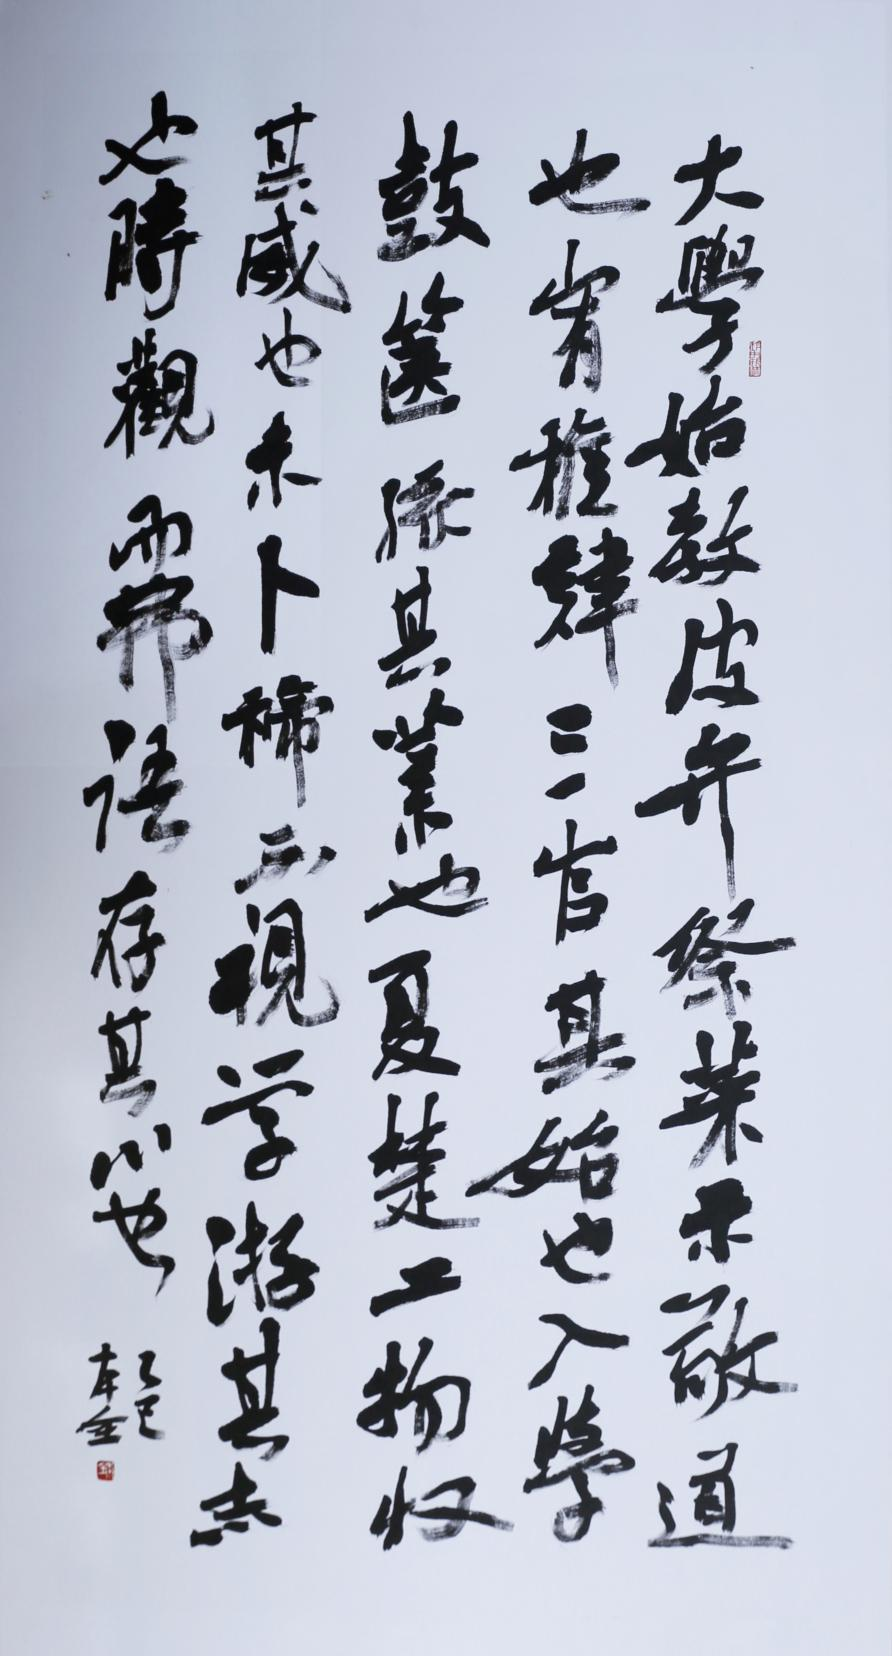 大學始教皮弁祭菜示敬道
也宵雅肄三官其始也入學
鼓篋孫其業也夏楚二物收
其威也未卜禘不視学游其志
也時觀而弗語存其心也
乙巳
本全